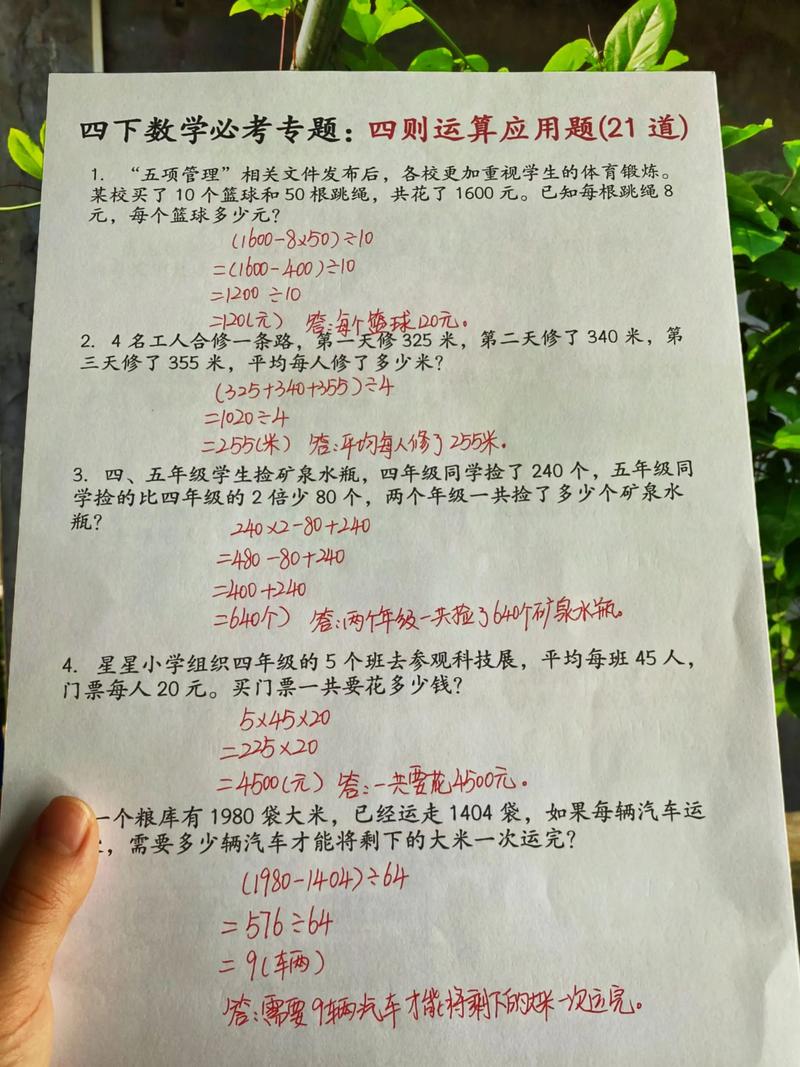 四下数学必考专题：四则运算应用题(21 道)
1. “五项管理”相关文件发布后，各校更加重视学生的体育锻炼。
某校买了 10 个篮球和 50 根跳绳，共花了 1600 元。已知每根跳绳 8
元，每个篮球多少元？
(1600-8×50)÷10
=(1600-400)÷10
=1200÷10
=120(元) 答:每个篮球120元。
2. 4 名工人合修一条路，第一天修 325 米，第二天修了 340 米，第
三天修了 355 米，平均每人修了多少米？
(325+340+355)÷4
=1020÷4
=255(米) 答:平均每人修了255米。
3. 四、五年级学生捡矿泉水瓶，四年级同学捡了 240 个，五年级同
学捡的比四年级的 2 倍少 80 个，两个年级一共捡了多少个矿泉水
瓶？
240×2-80+240
=480-80+240
=400+240
=640个) 答:两个年级一共捡了640个矿泉水瓶。
4. 星星小学组织四年级的 5 个班去参观科技展，平均每班 45 人，
门票每人 20 元。买门票一共要花多少钱？
5×45×20
=225×20
=4500(元) 答:一共要花4500元。
一个粮库有 1980 袋大米，已经运走 1404 袋，如果每辆汽车运
，需要多少辆汽车才能将剩下的大米一次运完？
(1980-1404)÷64
=576÷64
=9(车两)
答:需要9辆汽车才能将剩下的大米一次运完。